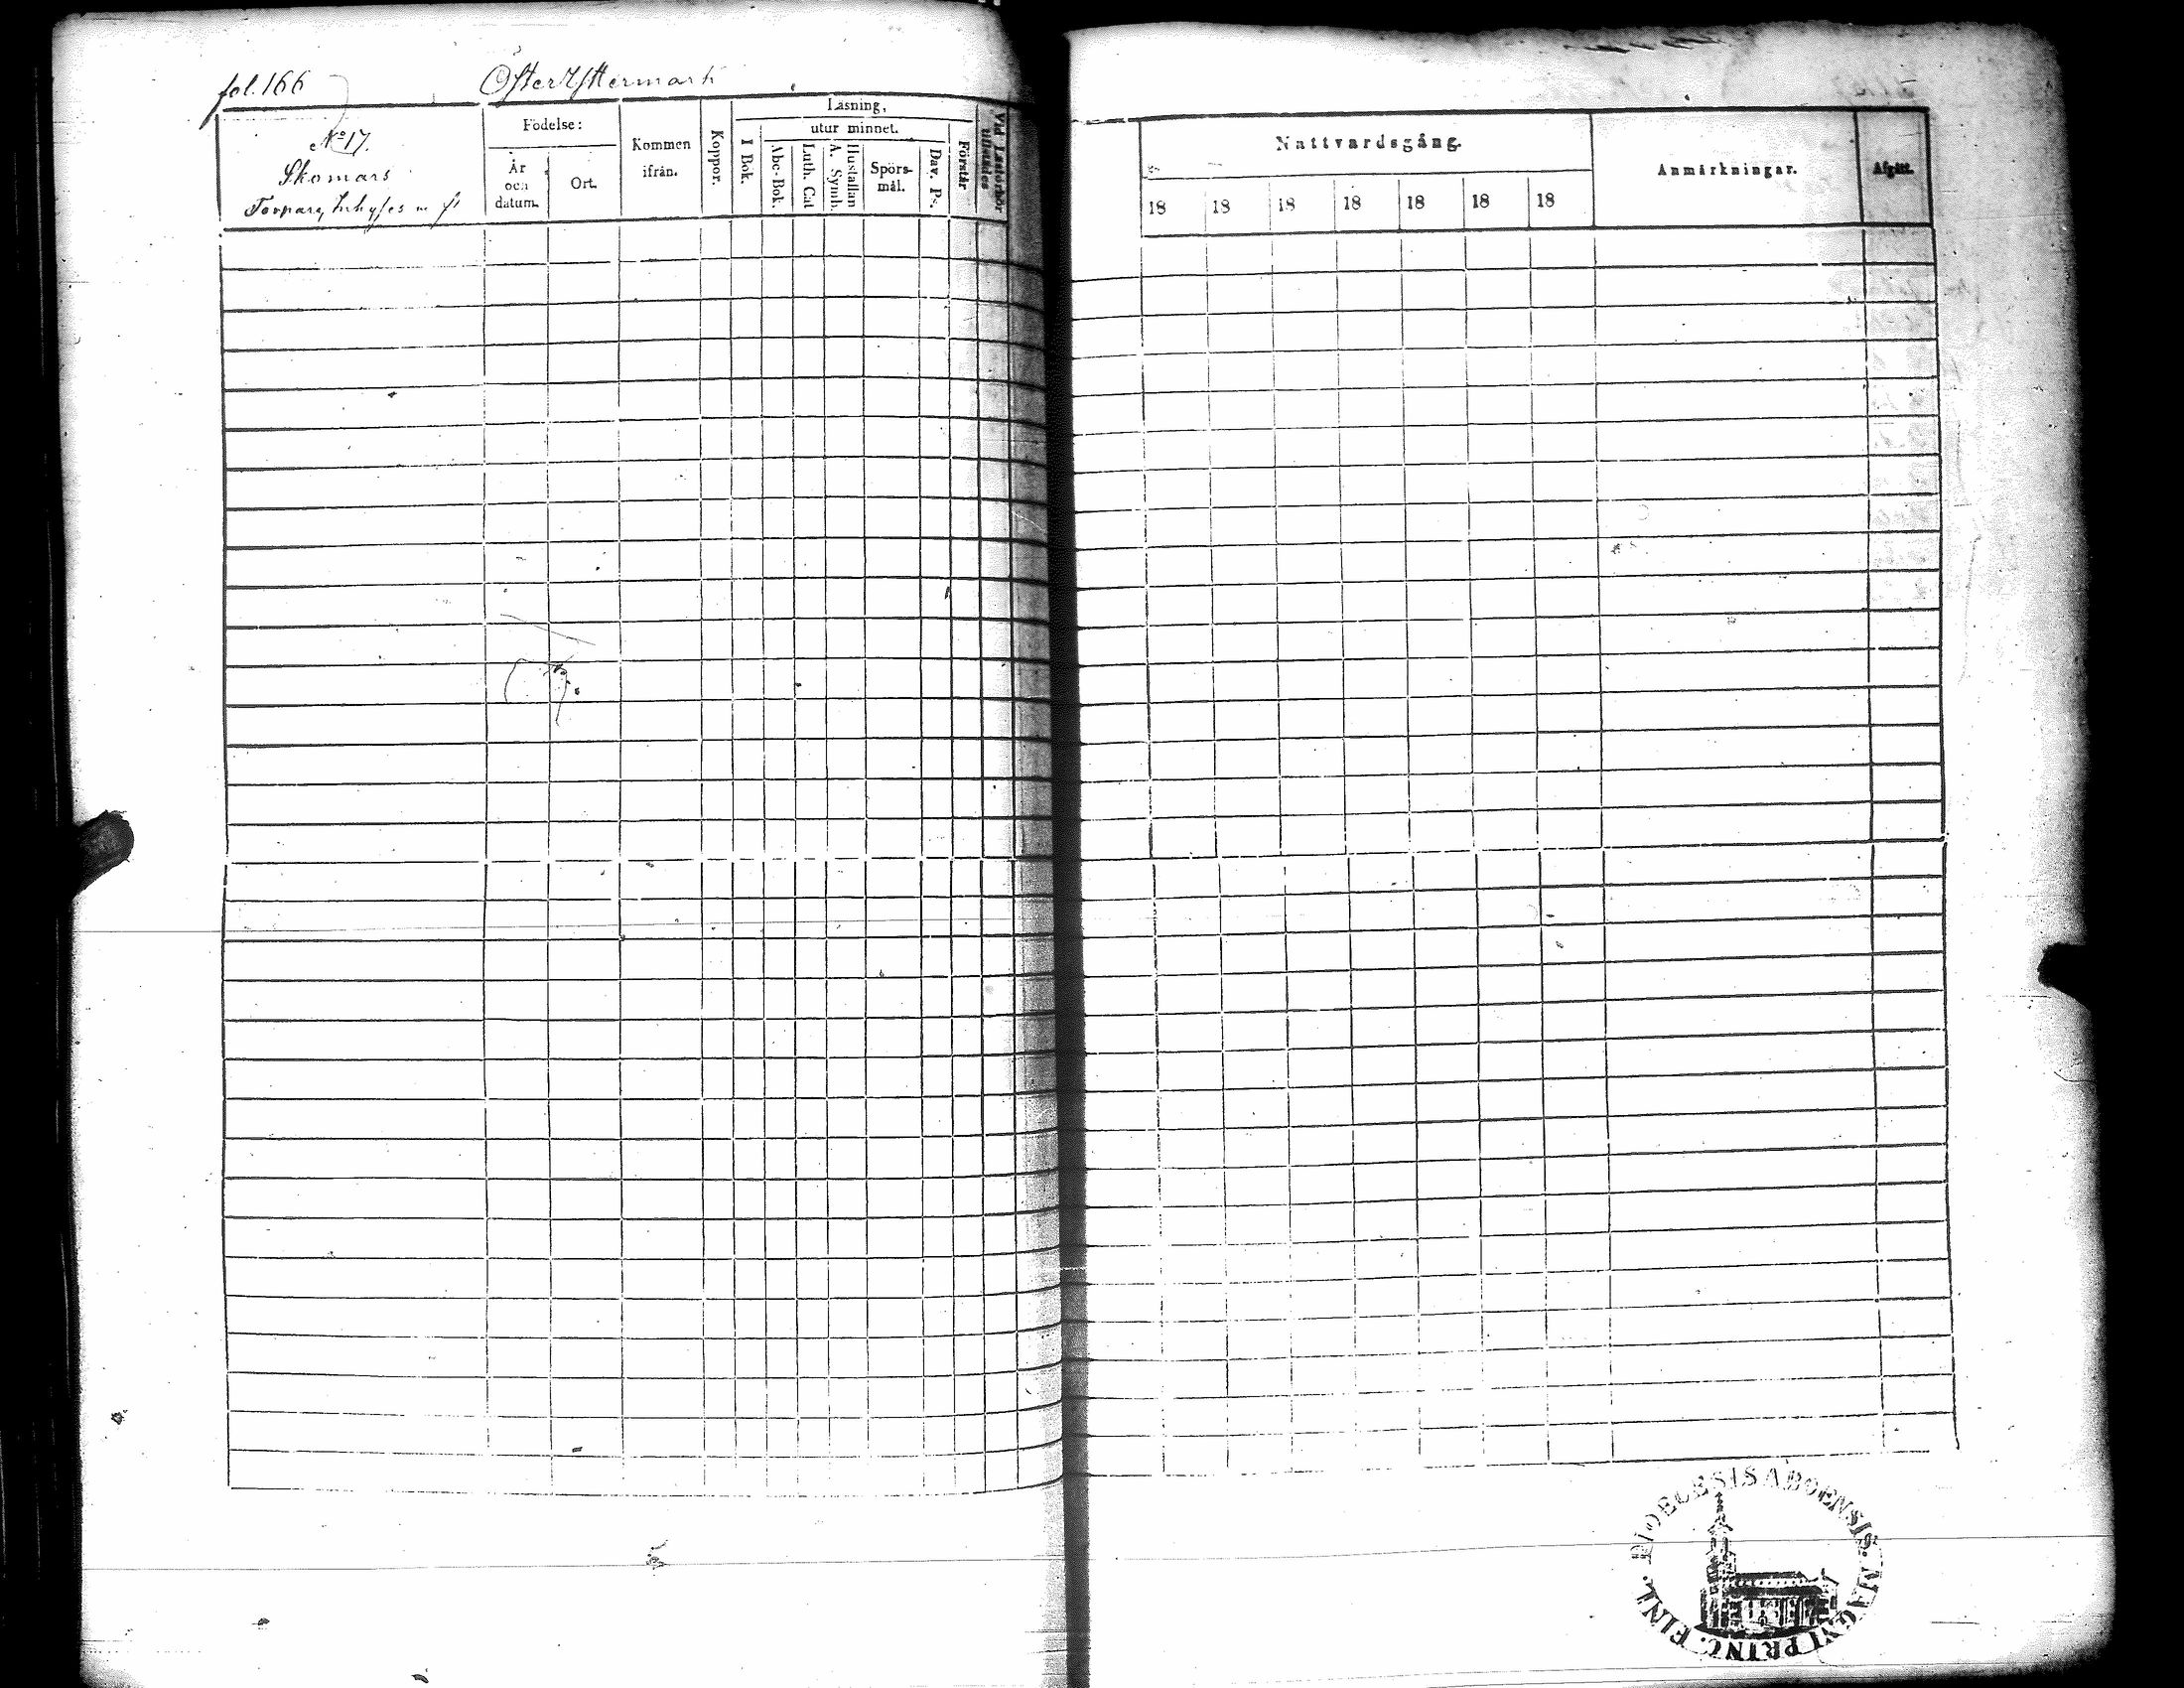 fol. 166
Öster Yttermark
No 17.
Skomars
Torpare, Inhyses m fl
Födelse:
År och datum.
Ort.
Kommen ifrån.
Koppor.
Läsning,
I Bok.
utur minnet.
Abc-Bok.
Luth. Cat
Hustaflan
A. Symb.
Spörsmål.
Dav. Ps.
Förstår
Vid Läsförhör tillstädes
Nattvardsgång.
18 18 18 18 18 18 18
Anmärkningar.
Afgått.
DIOECESIS ABOENSIS. MAGNI PRINC. FINL.